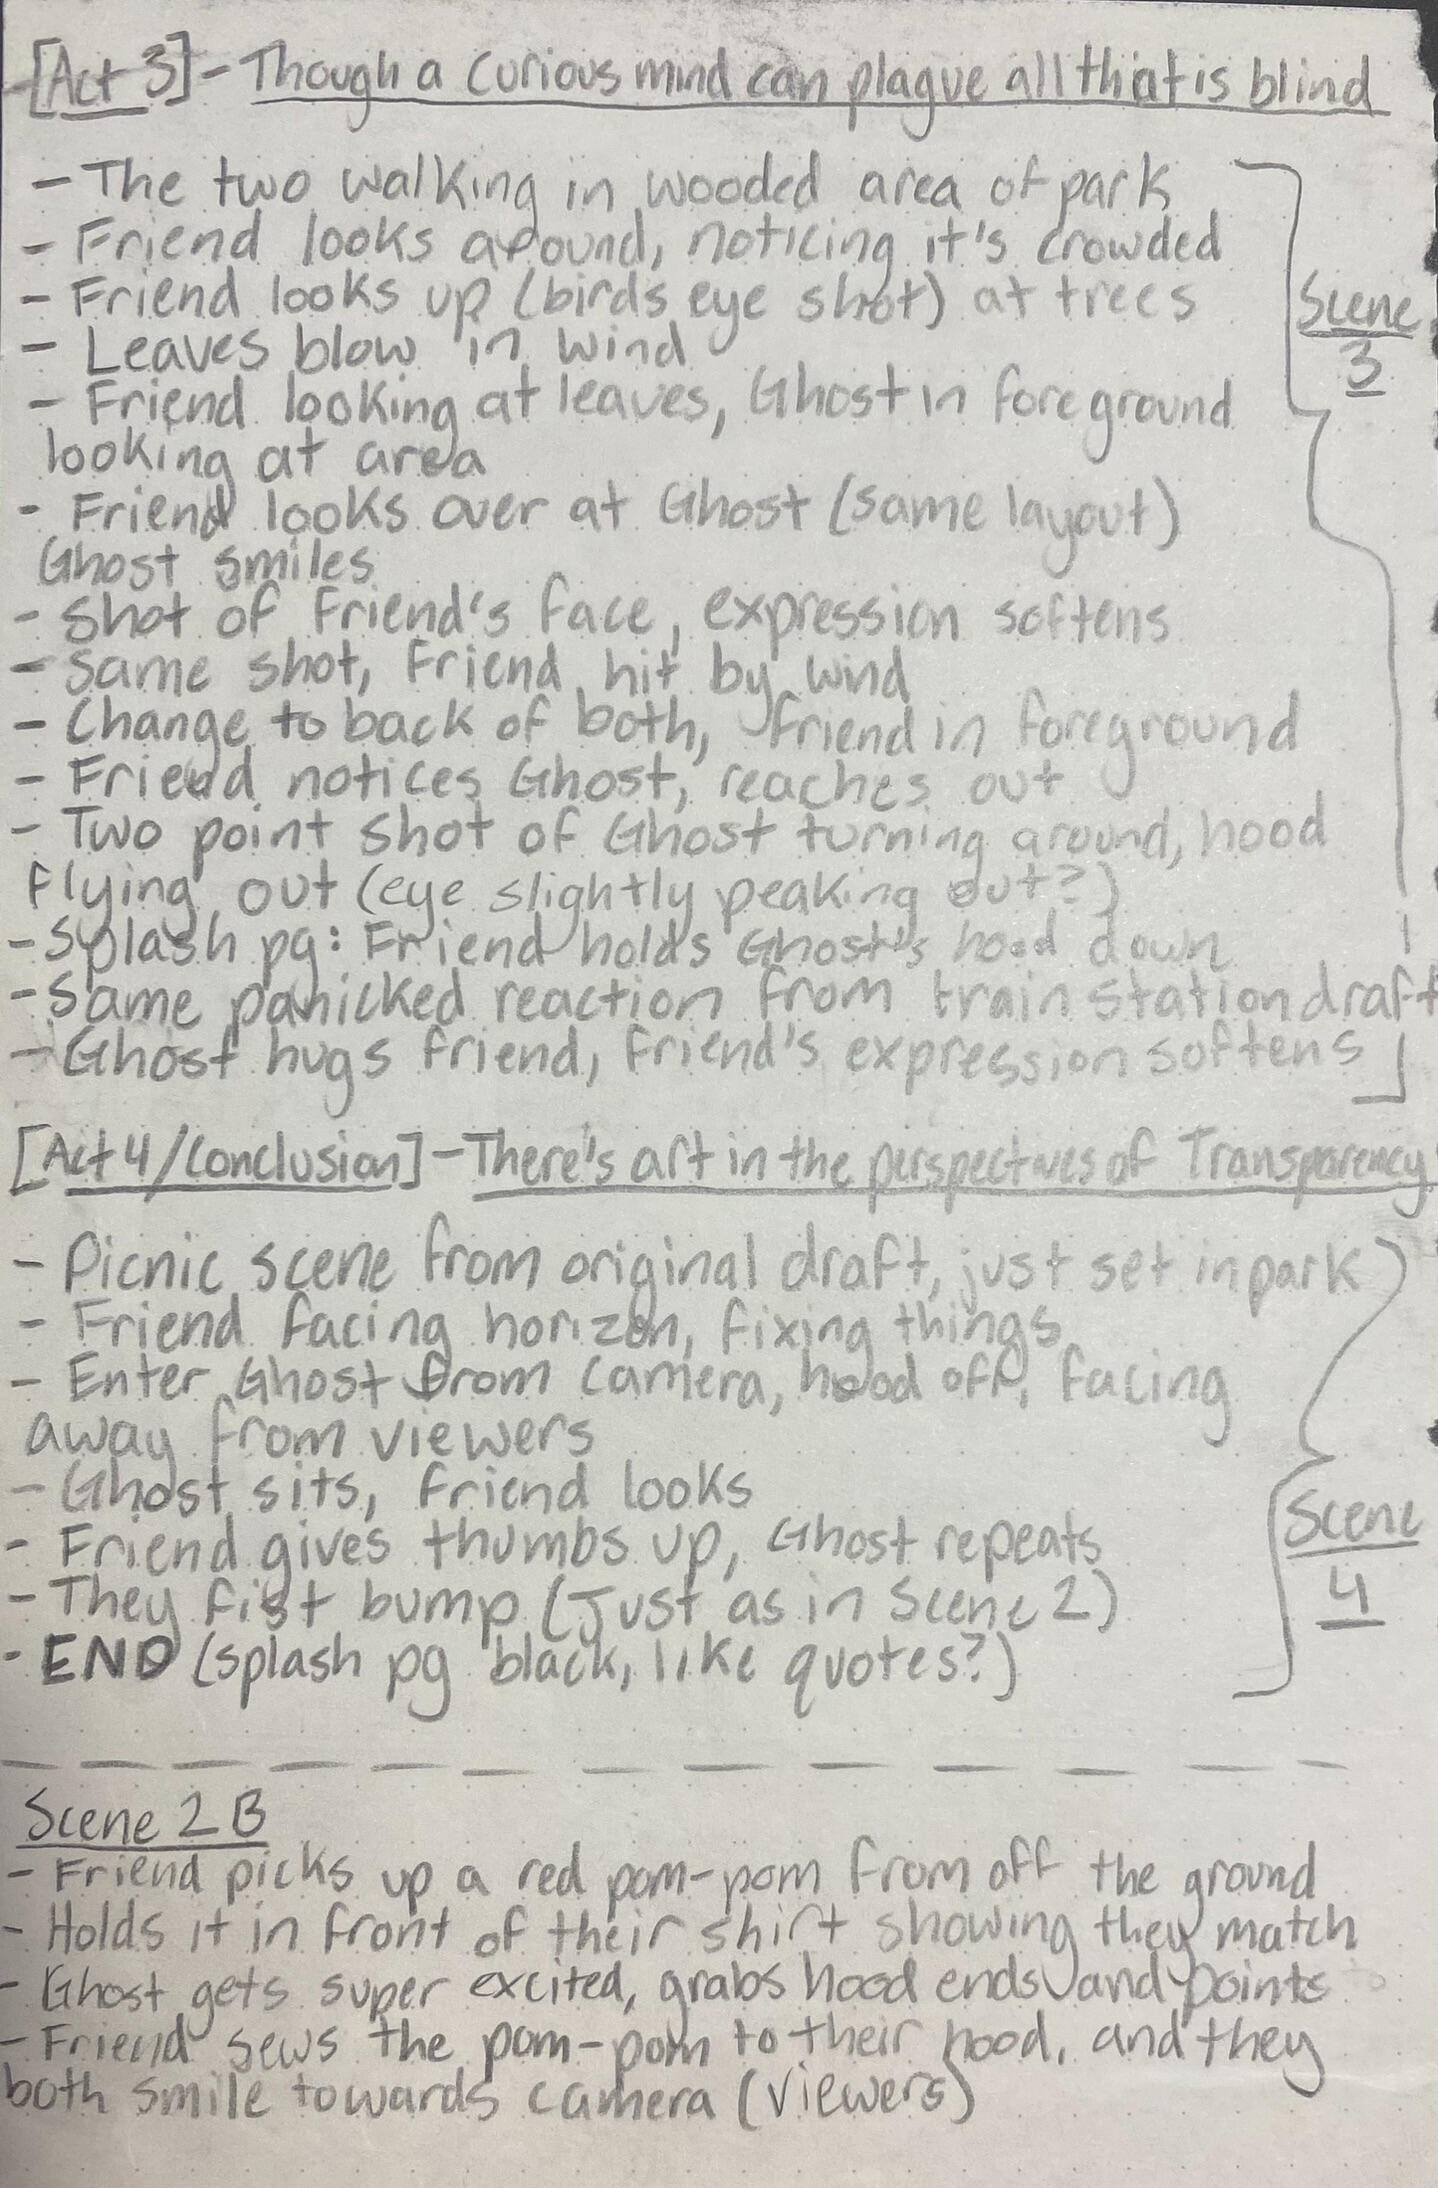 [Act 3] - Though a curious mind can plague all that is blind
- The two walking in wooded area of park
- Friend looks around, noticing it's crowded
- Friend looks up (birds eye shot) at trees
- Leaves blow in wind
- Friend looking at leaves, Ghost in foreground
looking at area
- Friend looks over at Ghost (same layout)
Ghost smiles
- Shot of Friend's face, expression softens
- Same shot, Friend hit by wind
- Change to back of both, Friend in foreground
- Friend notices Ghost, reaches out
- Two point shot of Ghost turning around, hood
flying out (eye slightly peaking out?)
- Splash pg: Friend holds Ghost's hood down
- Same panicked reaction from train station draft
- Ghost hugs Friend, Friend's expression softens
Scene
3
[Act 4/Conclusion] - There's art in the perspectives of Transparency
- Picnic scene from original draft, just set in park
- Friend facing horizon, fixing things
- Enter Ghost from camera, hood off, facing
away from viewers
- Ghost sits, Friend looks
- Friend gives thumbs up, Ghost repeats
- They fist bump (Just as in Scene 2)
- END (splash pg black, like quotes?)
Scene
4
Scene 2B
- Friend picks up a red pom-pom from off the ground
- Holds it in front of their shirt showing they match
- Ghost gets super excited, grabs hood ends and points
- Friend sews the pom-pom to their hood, and they
both smile towards camera (viewers)